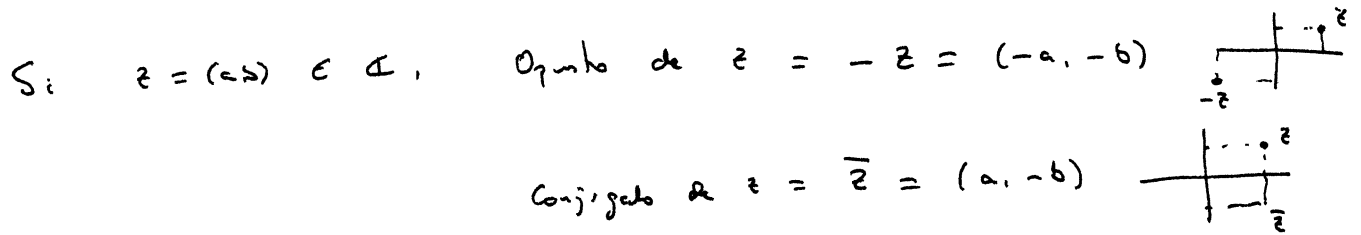 Si z = (a,b) ∈ ℂ, Opuesto de z = -z = (-a, -b) z
-z
Conjugado de z = z̅ = (a, -b) z
z̅